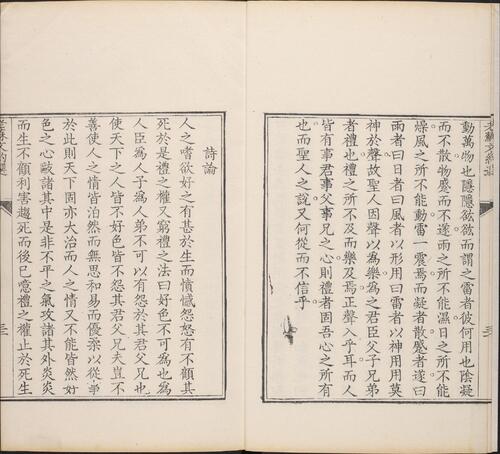 動萬物也隱隱谹谹而謂之雷者彼何用也陰凝
而不散物蹙而不遂雨之所不能濕日之所不能
燥風之所不能動雷一震焉而凝者散蹙者遂曰
雨者曰日者曰風者以形用曰雷者以神用用莫
神於聲故聖人因聲以為樂為之君臣父子兄弟
者禮也禮之所不及而樂及焉正聲入乎耳而人
皆有事君事父事兄之心則禮者固吾心之所有
也而聖人之說又何從而不信乎
詩論
人之嗜欲好之有甚於生而憤憾怨怒有不顧其
死於是禮之權又窮禮之法曰好色不可為也為
人臣為人子為人弟不可以有怨於其君父兄也
使天下之人皆不好色皆不怨其君父兄夫豈不
善使人之情皆泊然而無思和易而優柔以從事
於此則天下固亦大治而人之情又不能皆然好
色之心毆諸其中是非不平之氣攻諸其外炎炎
而生不顧利害趨死而後已噫禮之權止於死生
三